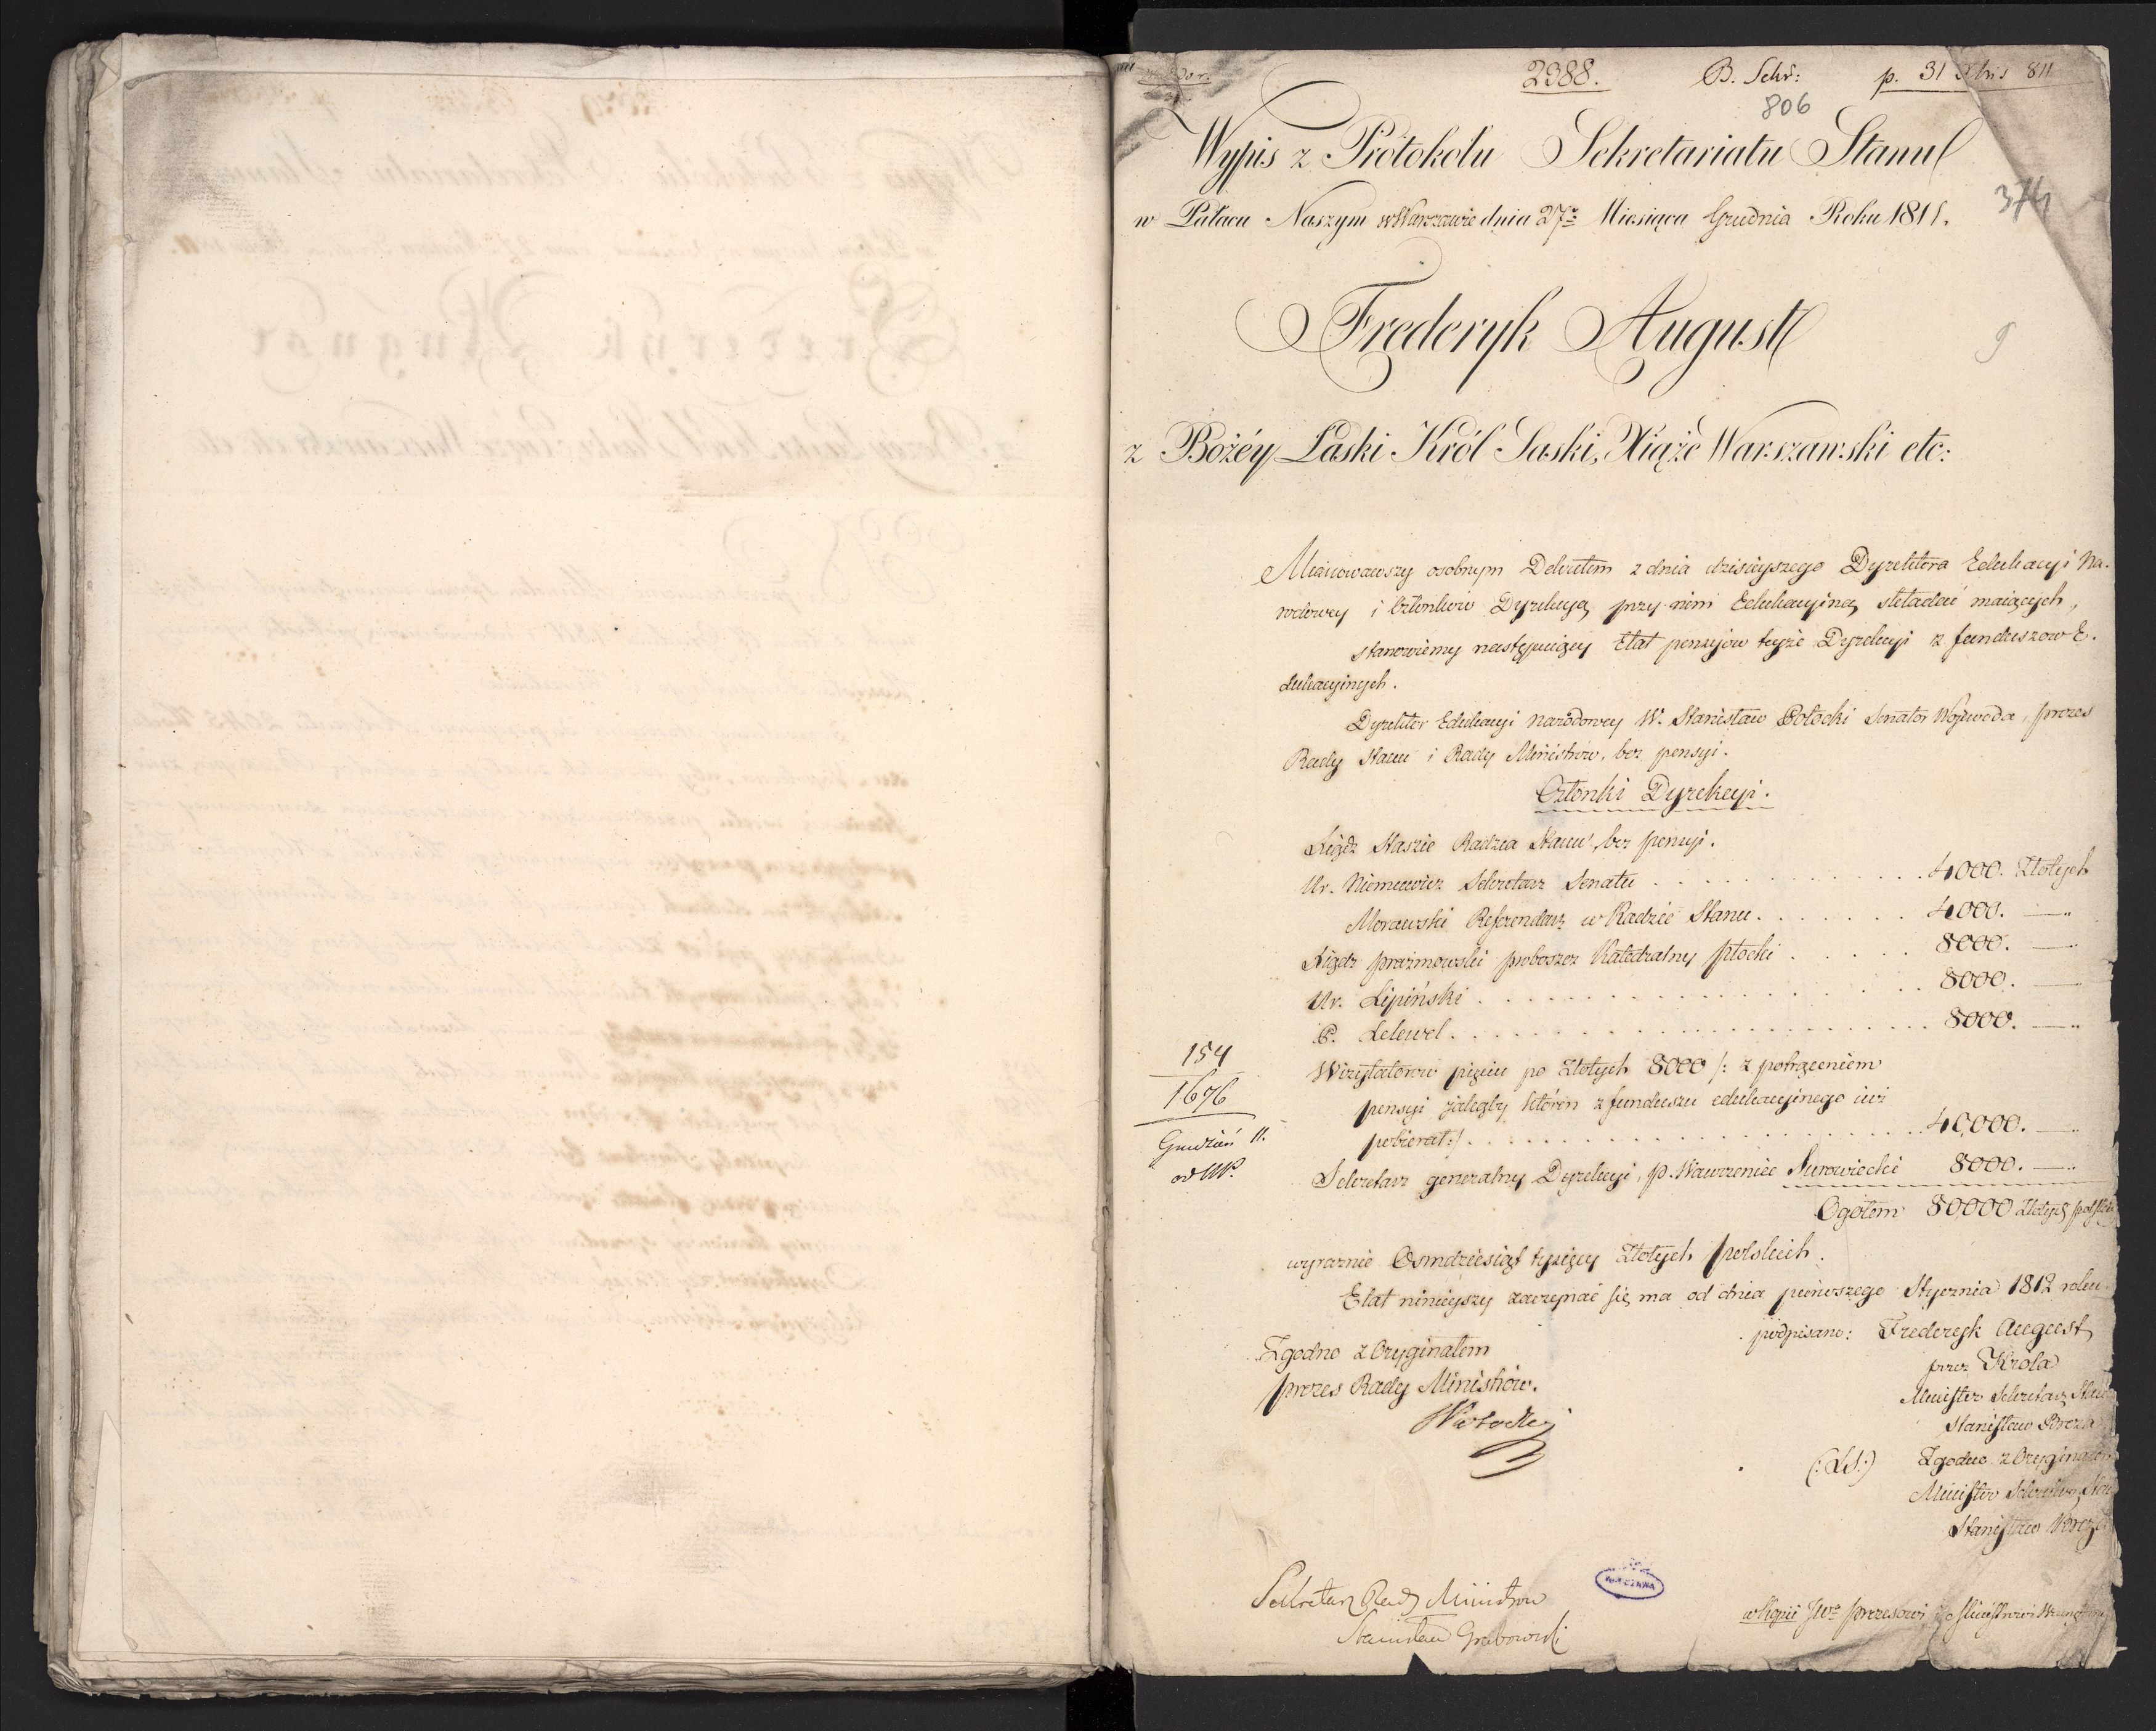 2388. B. Schr: p. 31 Xbris 811
806
Wypis z Protokołu Sekretariatu Stanu
374
w Pałacu Naszym w Warszawie dnia 27. Miesiąca Grudnia Roku 1811.
Frederyk August
9
z Bożéy Łaski Król Saski, Xiąże Warszawski etc:
Mianowawszy osobnym Dekretem z dnia dzisieyszego Dyrektora Edukacyi Na-
rodowey i Członków Dyrekcyą przy nim Edukacyiną składać maiących,
stanowiemy następuiący Etat pensyiow teyże Dyrekcyi z funduszow E-
dukacyinych.
Dyrektor Edukacyi Narodowey W. Stanisław Potocki Senator Woiewoda, prezes
Rady Stanu i Rady Ministrów, bez pensyi.
Członki Dyrekcyi.
Xiądz Staszic Radzca Stanu, bez pensyi.
Ur. Niemcewicz Sekretarz Senatu . . . . 4000. Złotych
Morawski Referendarz w Radzie Stanu . . . . 4000. —"
Xiądz prażmowski proboszcz Katedralny płocki . . . . 8000. —"
Ur. Lipiński . . . . 8000. —
P. Lelewel . . . . 8000. —"
Wizytatorow pięciu po Złotych 8000 /: z potrąceniem
pensyi jakąby któren z funduszu edukacyinego iuż
pobierał :/ . . . . 40,000. —
Sekretarz generalny Dyrekcyi, p. Wawrzeniec Surowiecki 8000. —"
Ogołem 80000 Złotych polskich
154
1676
Grudzień 11.
od MP.
wyraznie Osmdziesiąt tysięcy Złotych polskich.
Etat ninieyszy zaczynać się ma od dnia pierwszego Stycznia 1812 roku.
podpisano: Frederyk August
przez Króla
Minister Sekretarz Stanu
Stanisław Breza
(:LS:) Zgodno z Oryginałem
Minister Sekretarz Stanu
Stanisław Breza
Zgodno z Oryginałem
prezes Rady Ministrów.
SPotocki
Sekretarz Rady Ministrow
Stanisław Grabowski
WARSZAWA
w kopii JW prezesowi